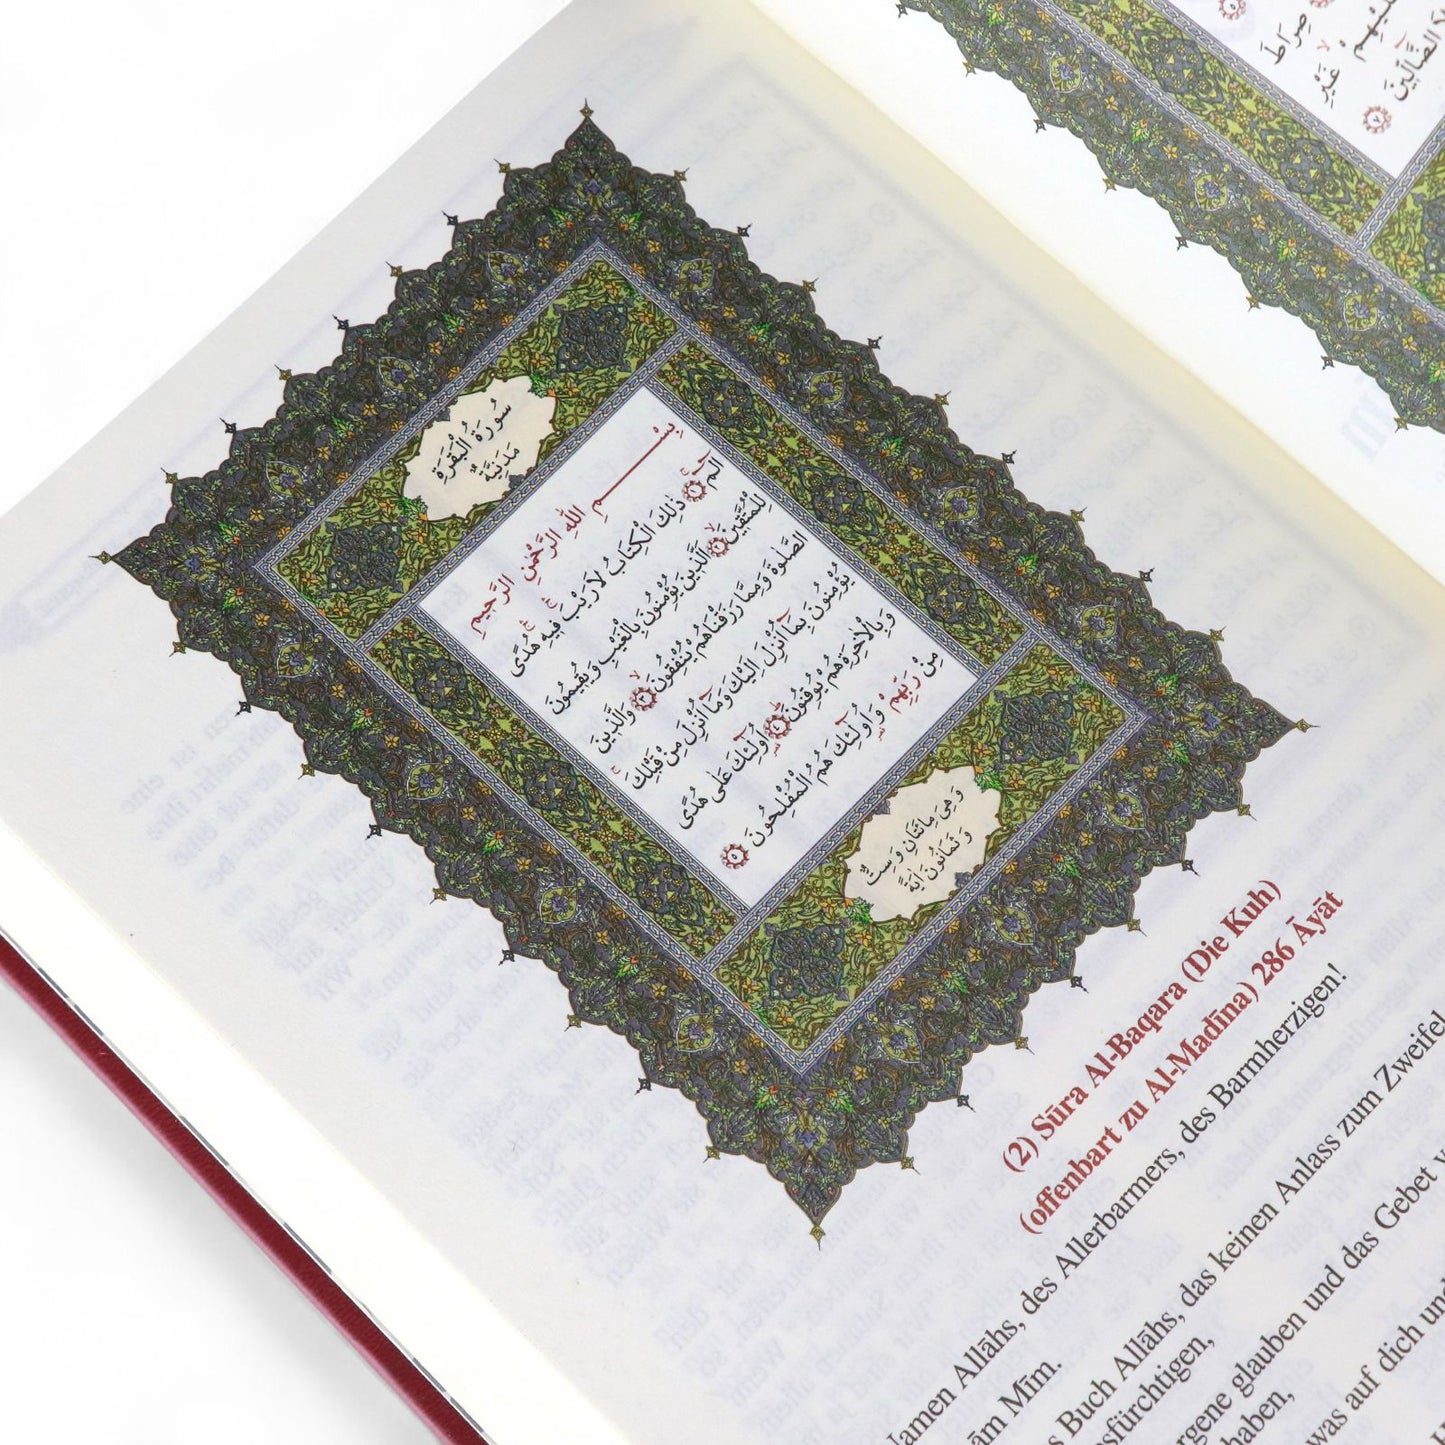 صِرَاطَ
غَيْرِ
الضَّالِّينَ ٧
سُورَةُ الْبَقَرَةِ
مَدَنِيَّةٌ
بِسْمِ اللّٰهِ الرَّحْمٰنِ الرَّحِيمِ
الٓمٓ ١ ذٰلِكَ الْكِتَابُ لَا رَيْبَ فِيهِ هُدًى
لِلْمُتَّقِينَ ٢ اَلَّذِينَ يُؤْمِنُونَ بِالْغَيْبِ وَيُقِيمُونَ
الصَّلٰوةَ وَمِمَّا رَزَقْنَاهُمْ يُنْفِقُونَ ٣ وَالَّذِينَ
يُؤْمِنُونَ بِمَٓا اُنْزِلَ اِلَيْكَ وَمَٓا اُنْزِلَ مِنْ قَبْلِكَ
وَبِالْاٰخِرَةِ هُمْ يُوقِنُونَ ٤ اُو۬لٰٓئِكَ عَلٰى هُدًى
مِنْ رَبِّهِمْ وَاُو۬لٰٓئِكَ هُمُ الْمُفْلِحُونَ ٥
وَهِيَ مِائَتَانِ وَسِتٌّ
وَثَمَانُونَ اٰيَةً
(2) Sūra Al-Baqara (Die Kuh)
(offenbart zu Al-Madīna) 286 Āyāt
Namen Allāhs, des Allerbarmers, des Barmherzigen!
ām Mīm.
s Buch Allāhs, das keinen Anlass zum Zweifel
esfürchtigen,
rgene glauben und das Gebet v
haben,
was auf dich und